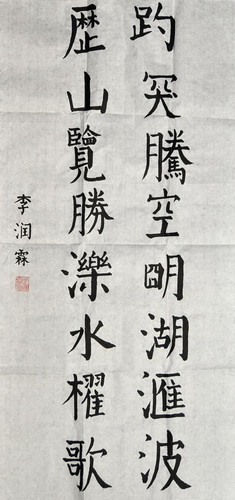 趵突騰空明湖滙波
歷山覽勝濼水櫂歌
李润霖